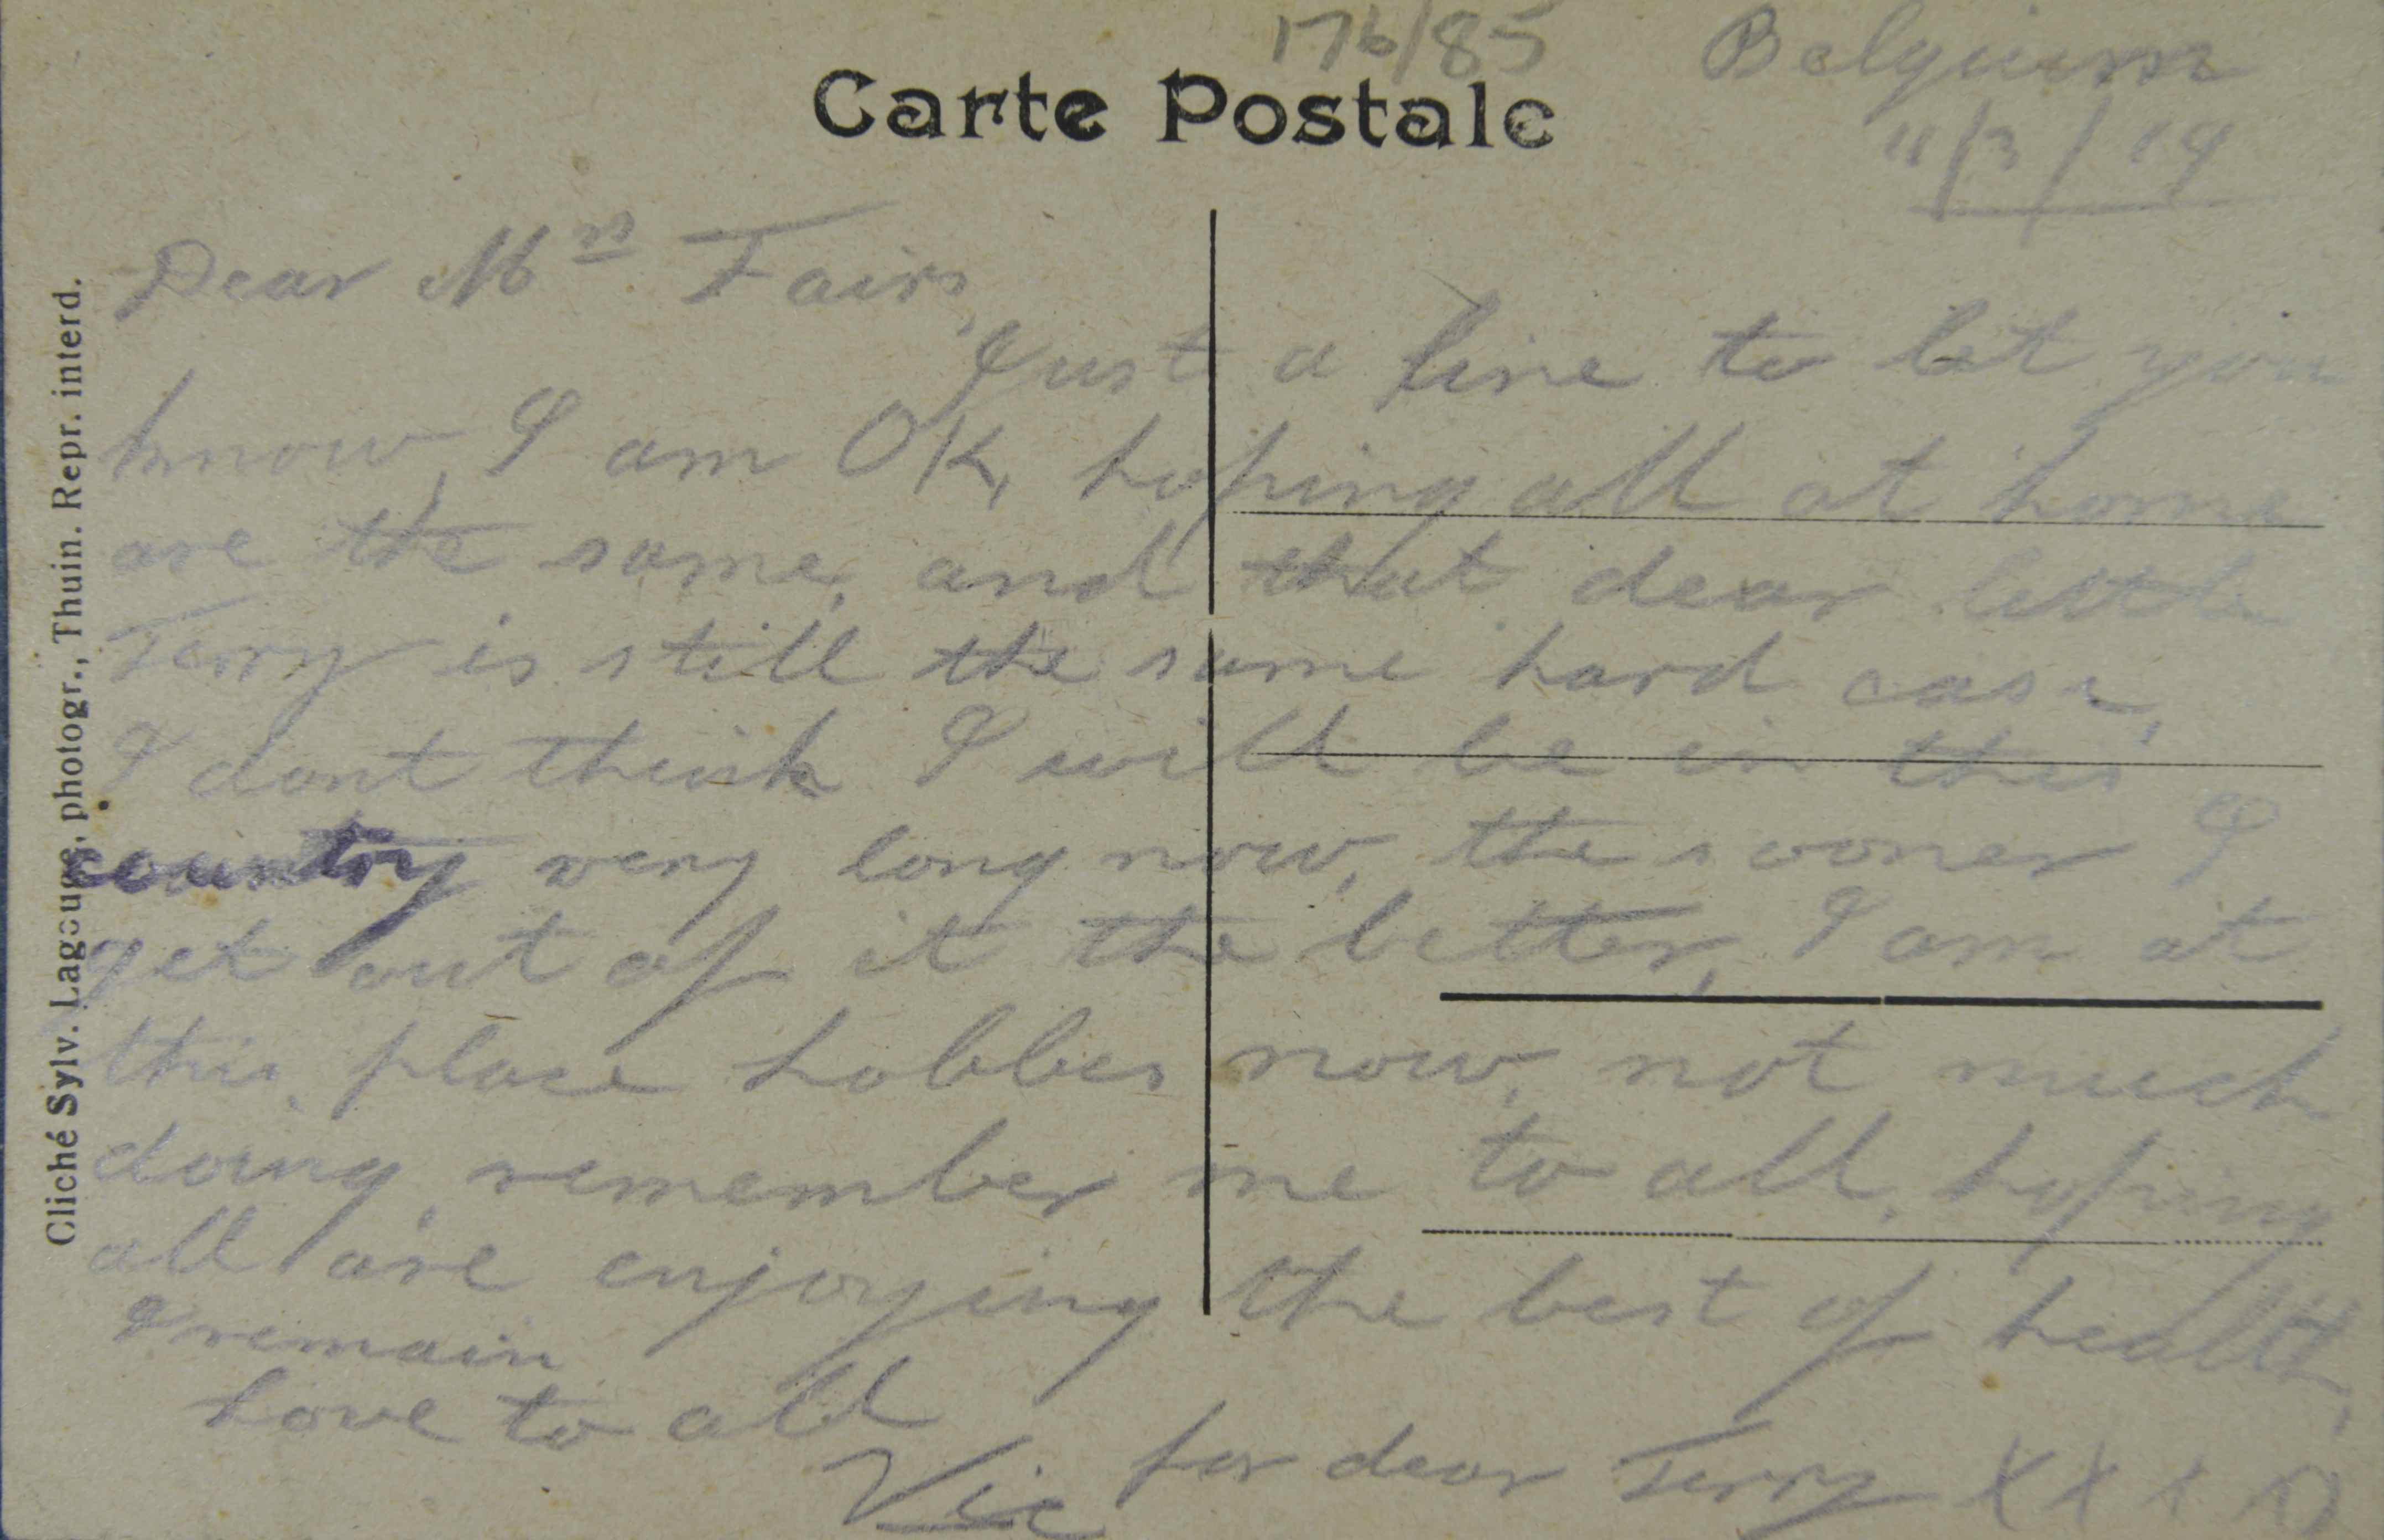 176/85
Belgium
11/3/19
Carte Postale
Dear Mrs Fairs,
Just a line to let you
know, I am OK, hoping all at home
are the same, and that dear little
Terry is still the same hard case,
I dont think I will be in this
country very long now, the sooner I
get out of it the better, I am at
this place hobbes now, not much
doing, remember me to all, hoping
all are enjoying the best of health,
I remain
love to all
Vic for dear Terry XXXX
Cliché Sylv. Lagouge, photogr., Thuin. Repr. interd.